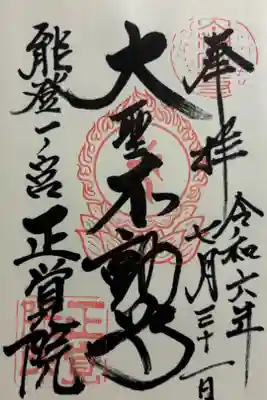 奉拝
令和六年
七月三十一日
大聖不動
能登一ノ宮 正覚院